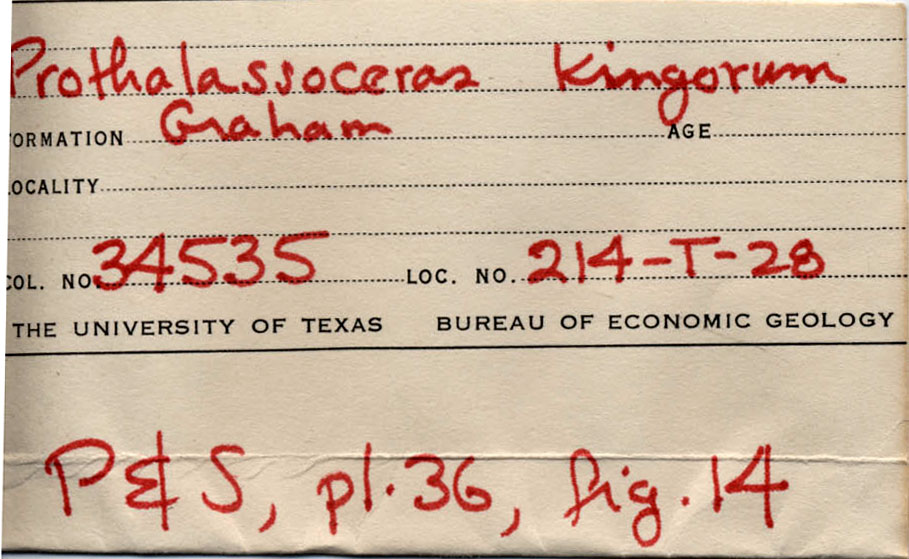 Prothalassoceras Kingorum
ORMATION Graham AGE
OCALITY
COL. NO. 34535 LOC. NO. 214-T-28
THE UNIVERSITY OF TEXAS BUREAU OF ECONOMIC GEOLOGY
P & S, pl. 36, fig. 14